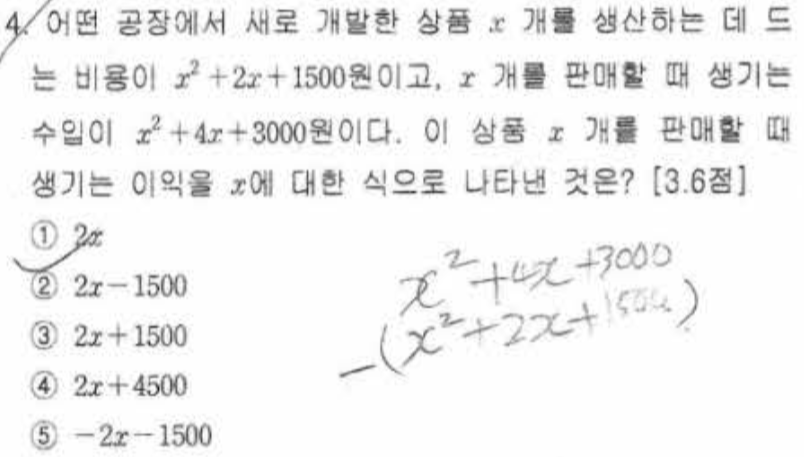 4. 어떤 공장에서 새로 개발한 상품 x 개를 생산하는 데 드
는 비용이 x² + 2x + 1500원이고, x 개를 판매할 때 생기는
수입이 x² + 4x + 3000원이다. 이 상품 x 개를 판매할 때
생기는 이익을 x에 대한 식으로 나타낸 것은? [3.6점]
① 2x
② 2x - 1500
③ 2x + 1500
④ 2x + 4500
⑤ -2x - 1500
x² + 4x + 3000
-(x² + 2x + 1500)